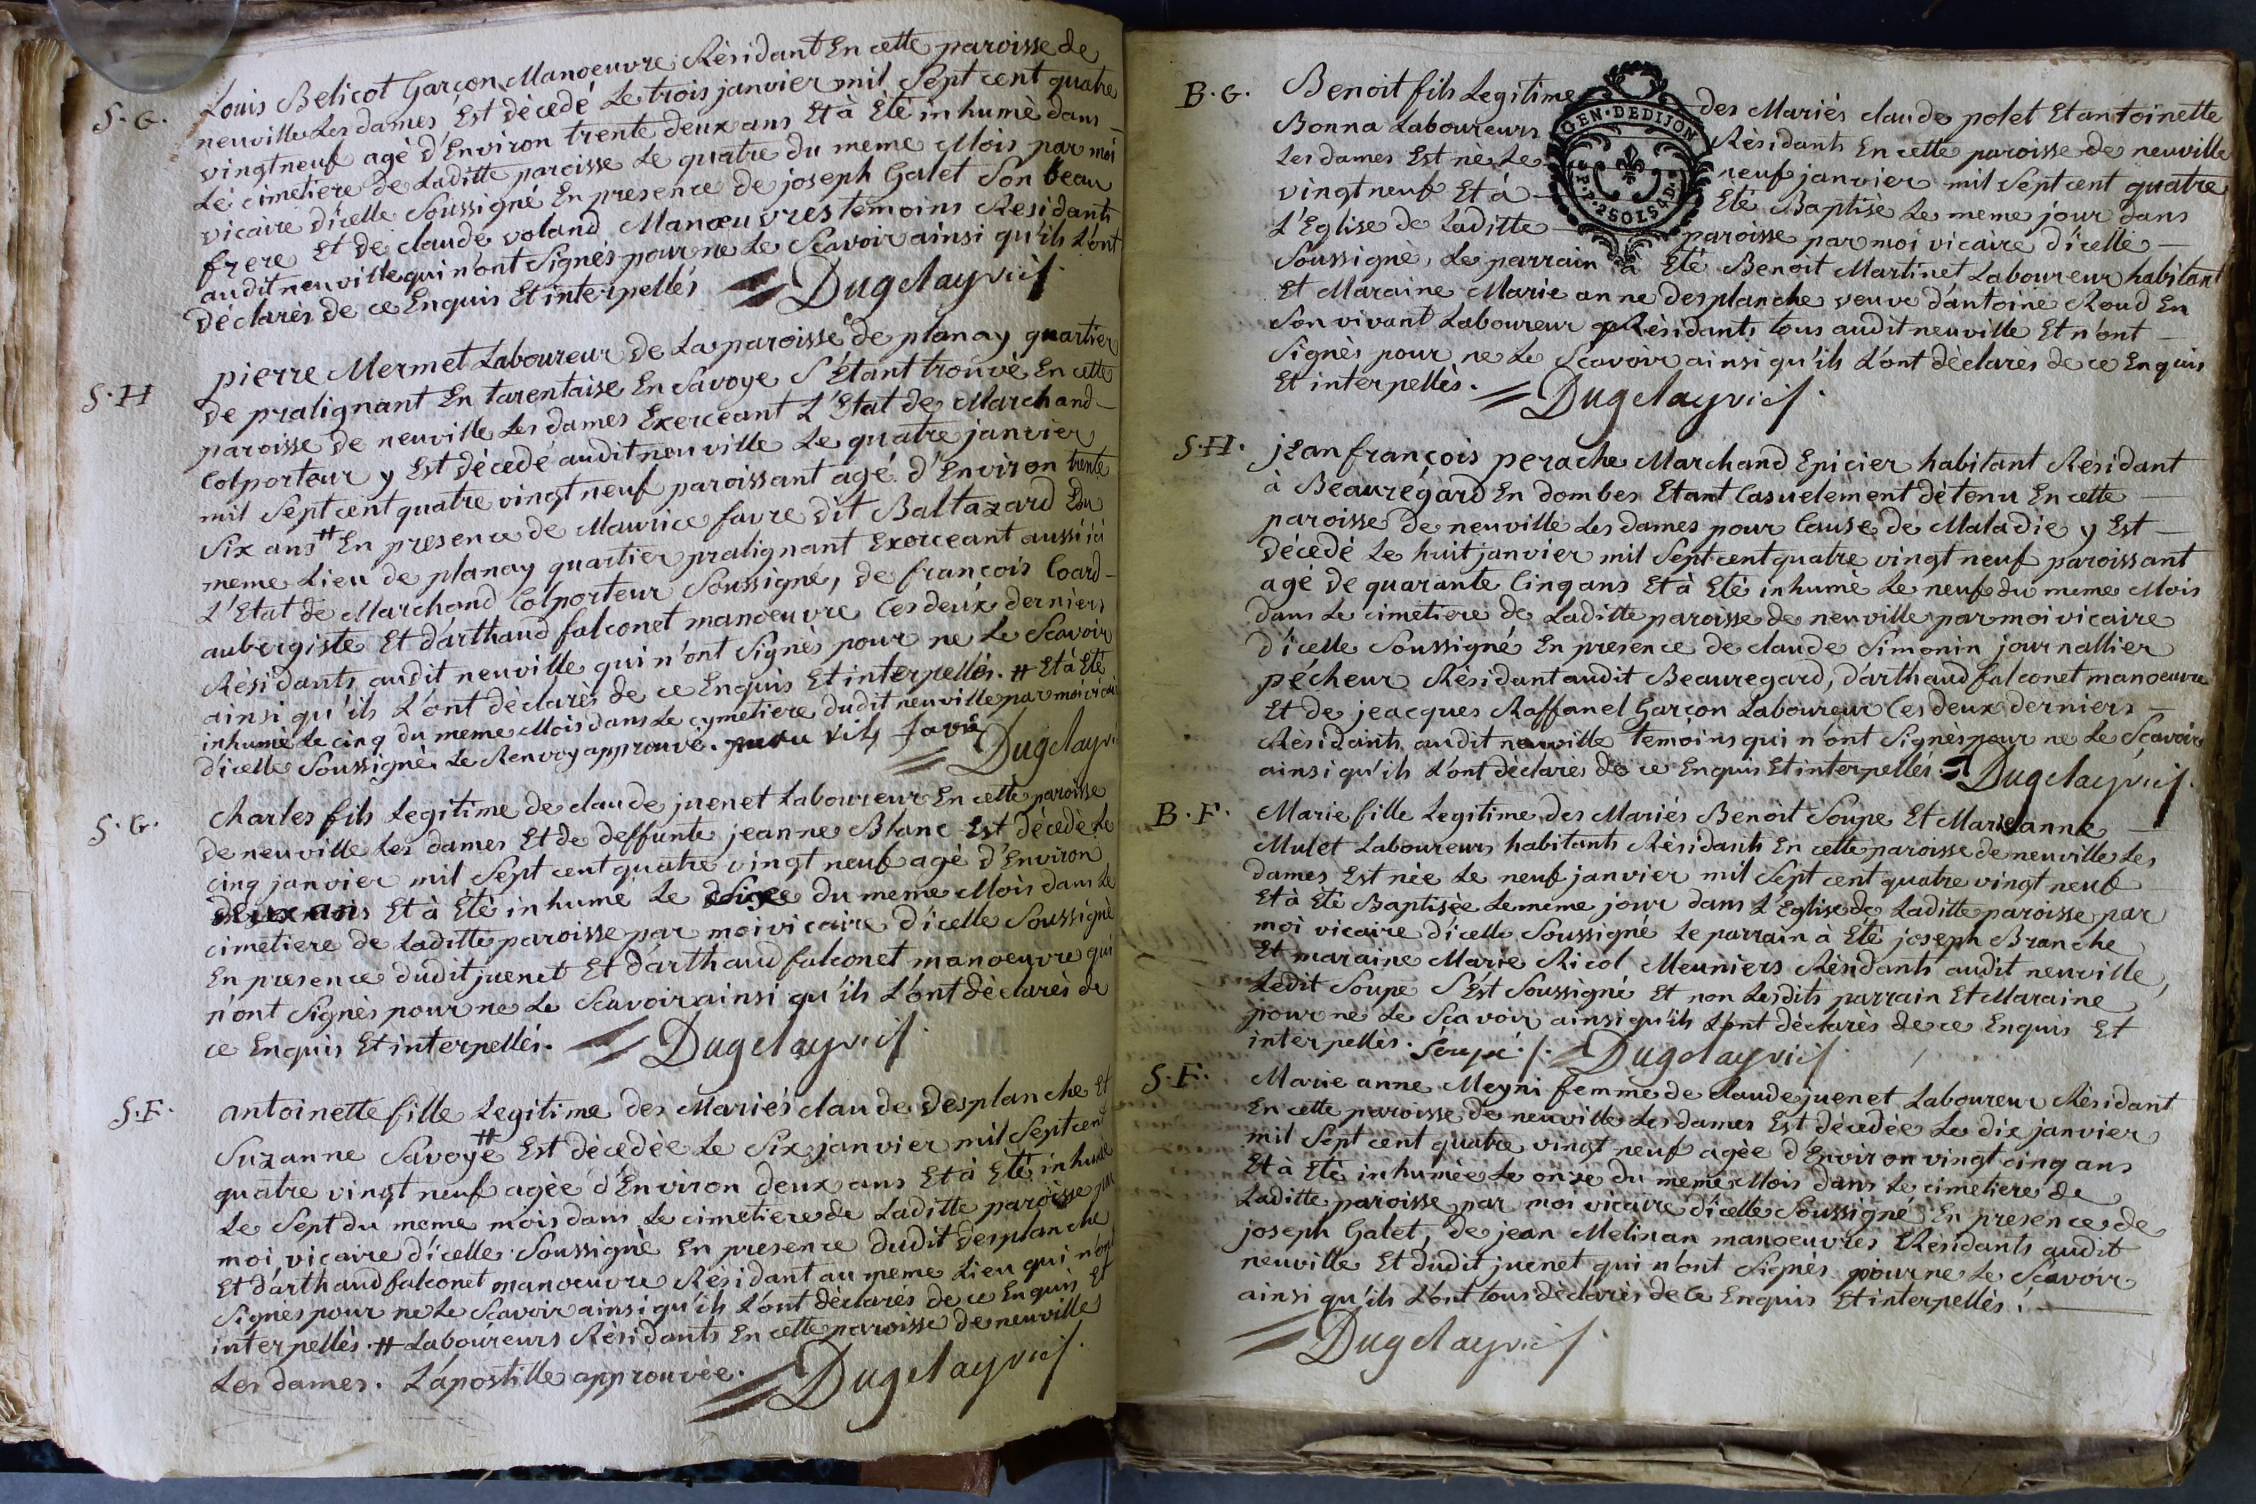 S. G.
Louis Belicot Garçon Manoeuvre Résidant En cette paroisse de
neuville Les dames Est décédé Le trois janvier mil Sept cent quatre
vingt neuf agé d'Environ trente deux ans Et à Eté inhumé dans
Le cimetiere de Laditte paroisse Le quatre du meme Mois par moi
vicaire d'icelle Soussigné En presence de joseph Galet Son beau
frere Et de claude voland Manoeuvres temoins Residants
audit neuville qui n'ont Signés pour ne Le Scavoir ainsi qu'ils L'ont
déclarés de ce Enquis Et interpellés Dugelay vic
S. H
pierre Mermet Laboureur de La paroisse de planay quartier
de pralignant En tarentaise En Savoye S'Etant trouvé En cette
paroisse de neuville Les dames Exerceant L'Etat de Marchand
Colporteur y Est décedé audit neuville Le quatre janvier
mil Sept cent quatre vingt neuf paroissant agé d'Environ trente
Six ans # En presence de Maurice favre dit Baltazard Du
meme Lieu de planay quartier pralignant Exerceant aussi ici
L'Etat de Marchand Colporteur Soussigné, de françois Coard
aubergiste Et d'arthaud falconet manoeuvre Ces deux derniers
Résidants audit neuville qui n'ont Signés pour ne Le Scavoir
ainsi qu'ils L'ont déclarés de ce Enquis Et interpellés. # Et à Eté
inhumé Le cinq du meme Mois dans Le cymetiere dudit neuville par moi vicaire
d'icelle Soussigné. Le Renvoy approuvé. favre Dugelay vi
S. G.
Charles fils Legitime de claude juenet Laboureur En cette paroisse
de neuville Les dames Et de deffunte jeanne Blanc Est décedé Le
cinq janvier mil Sept cent quatre vingt neuf agé d'Environ
Et à Eté inhumé Le du meme Mois dans Le
cimetiere de Laditte paroisse par moi vicaire d'icelle Soussigné
En presence dudit juenet Et d'arthaud falconet manoeuvre qui
n'ont Signés pour ne Le Scavoir ainsi qu'ils L'ont déclarés de
ce Enquis Et interpellés. Dugelay vic
S. F.
antoinette fille Legitime des Mariés claude desplanche Et
Suzanne Savoye # Est décedée Le Six janvier mil Sept cent
quatre vingt neuf agée d'Environ deux ans Et à Eté inhumée
Le Sept du meme mois dans Le cimetiere de Laditte paroisse par
moi vicaire d'icelle Soussigné En presence dudit desplanche
Et d'arthaud falconet manoeuvre Résidant au meme Lieu qui n'ont
Signés pour ne Le Scavoir ainsi qu'ils L'ont déclarés de ce Enquis Et
interpellés. # Laboureurs Résidants En cette paroisse de neuville
Les dames. L'apostille approuvée. Dugelay vic
GEN. DE DIJON
B. G.
Benoit fils Legitime des Mariés claude polet Et antoinette
Bonna Laboureurs Résidants En cette paroisse de neuville
Les dames Est né Le neuf janvier mil Sept cent quatre
vingt neuf Et à Eté Baptisé Le meme jour dans
L'Eglise de Laditte paroisse par moi vicaire d'icelle
Soussigné, Le parrain à Eté Benoit Martinet Laboureur habitant
Et Maraine Marie anne Desplanche veuve d'antoine Roud En
Son vivant Laboureur Résidants tous audit neuville Et n'ont
Signés pour ne Le Scavoir ainsi qu'ils L'ont déclarés de ce Enquis
Et interpellés. Dugelay vic
S. H.
jean françois perache Marchand Epicier habitant Résidant
à Beauregard En dombes Etant Casuelement détenu En cette
paroisse de neuville Les dames pour Cause de Maladie y Est
décedé Le huit janvier mil Sept cent quatre vingt neuf paroissant
agé de quarante Cinq ans Et à Eté inhumé Le neuf du meme Mois
dans Le cimetiere de Laditte paroisse de neuville par moi vicaire
d'icelle Soussigné En presence de claude Simonin journallier
pécheur Résidant audit Beauregard, d'arthaud falconet manoeuvre
Et de jeacques Raffanel Garçon Laboureur Ces deux derniers
Résidants audit neuville temoins qui n'ont Signés pour ne Le Scavoir
ainsi qu'ils L'ont déclarés de ce Enquis Et interpellés. Dugelay vic
B. F.
Marie fille Legitime des Mariés Benoit Soupe Et Marieanne
Mulet Laboureurs habitants Résidants En cette paroisse de neuville Les
dames Est née Le neuf janvier mil Sept cent quatre vingt neuf
Et à Eté Baptisée Le méme jour dans L'Eglise de Laditte paroisse par
moi vicaire d'icelle Soussigné Le parrain à Eté joseph Branche
Et maraine Marie Ricol Meuniers Résidants audit neuville,
Ledit Soupe S'Est Soussigné Et non Lesdits parrain Et Maraine
pour ne Le Scavoir ainsi qu'ils L'ont déclarés de ce Enquis Et
interpellés. Soupe Dugelay vic
S. F.
Marie anne Meyni femme de claude juenet Laboureur Résidant
En cette paroisse de neuville Les dames Est décedée Le dix janvier
mil Sept cent quatre vingt neuf agée d'Environ vingt cinq ans
Et à Eté inhumée Le onze du meme Mois dans Le cimetiere de
Laditte paroisse par moi vicaire d'icelle Soussigné En presence de
joseph Galet, de jean Melinan manoeuvres Résidants audit
neuville Et dudit juenet qui n'ont Signés pour ne Le Scavoir
ainsi qu'ils L'ont tous déclarés de Ce Enquis Et interpellés.
Dugelay vic